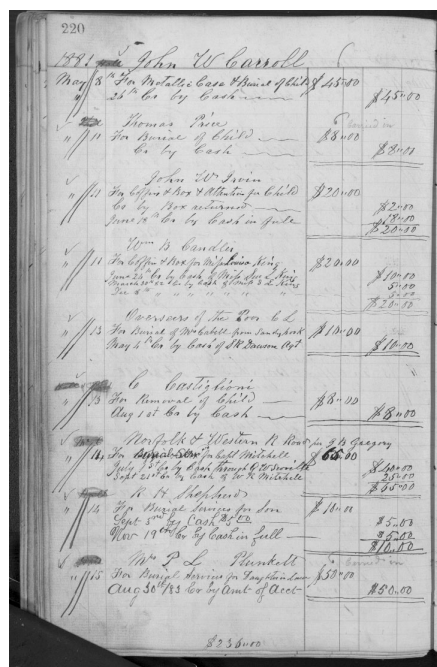 220
1882 John W Carroll
May 8th For Metallic Case & Burial of Child $45.00
26th Cr by Cash $45.00
Thomas Price
" 10 For Burial of Child $8.00
Cr by Cash $8.00
John W Irvin
" 11 For Coffin & Box & Attention for Child $20.00
Cr by Box returned $2.00
June 18th Cr by Cash in full 18.00
$20.00
Wm B Candler
" 11 For Coffin & Box for Miss Louisa King $20.00
June 26th Cr by Cash of Miss Sue L King $10.00
Cr by Cash of Miss S L King 5.00
Dec 6th " " " " " " 5.00
$20.00
Overseers of the Poor C L
" 13 For Burial of Mr Cabell from Sandy hook $10.00
May 4th Cr by Cash of S R Dawson Agt $10.00
C Castiglioni
" 13 For Removal of Child $8.00
Aug 1st Cr by Cash $8.00
Norfolk & Western R Road for J B Gregory
" 14 For Capt Mitchell $65.00
July Cr by Cash through $40.00
Sept 21st Cr by Cash of W R Mitchell 25.00
$65.00
R H Shepherd
" 14 For Burial Services for Son $10.00
Sept 5th By Cash $5.00 $5.00
Nov 19th Cr By Cash in full $5.00
$10.00
Mrs P L Plunkett
" 15 For Burial Services for Daughter in Law $50.00
Aug 30th 183 Cr by Amt of Acct $50.00
$236.00